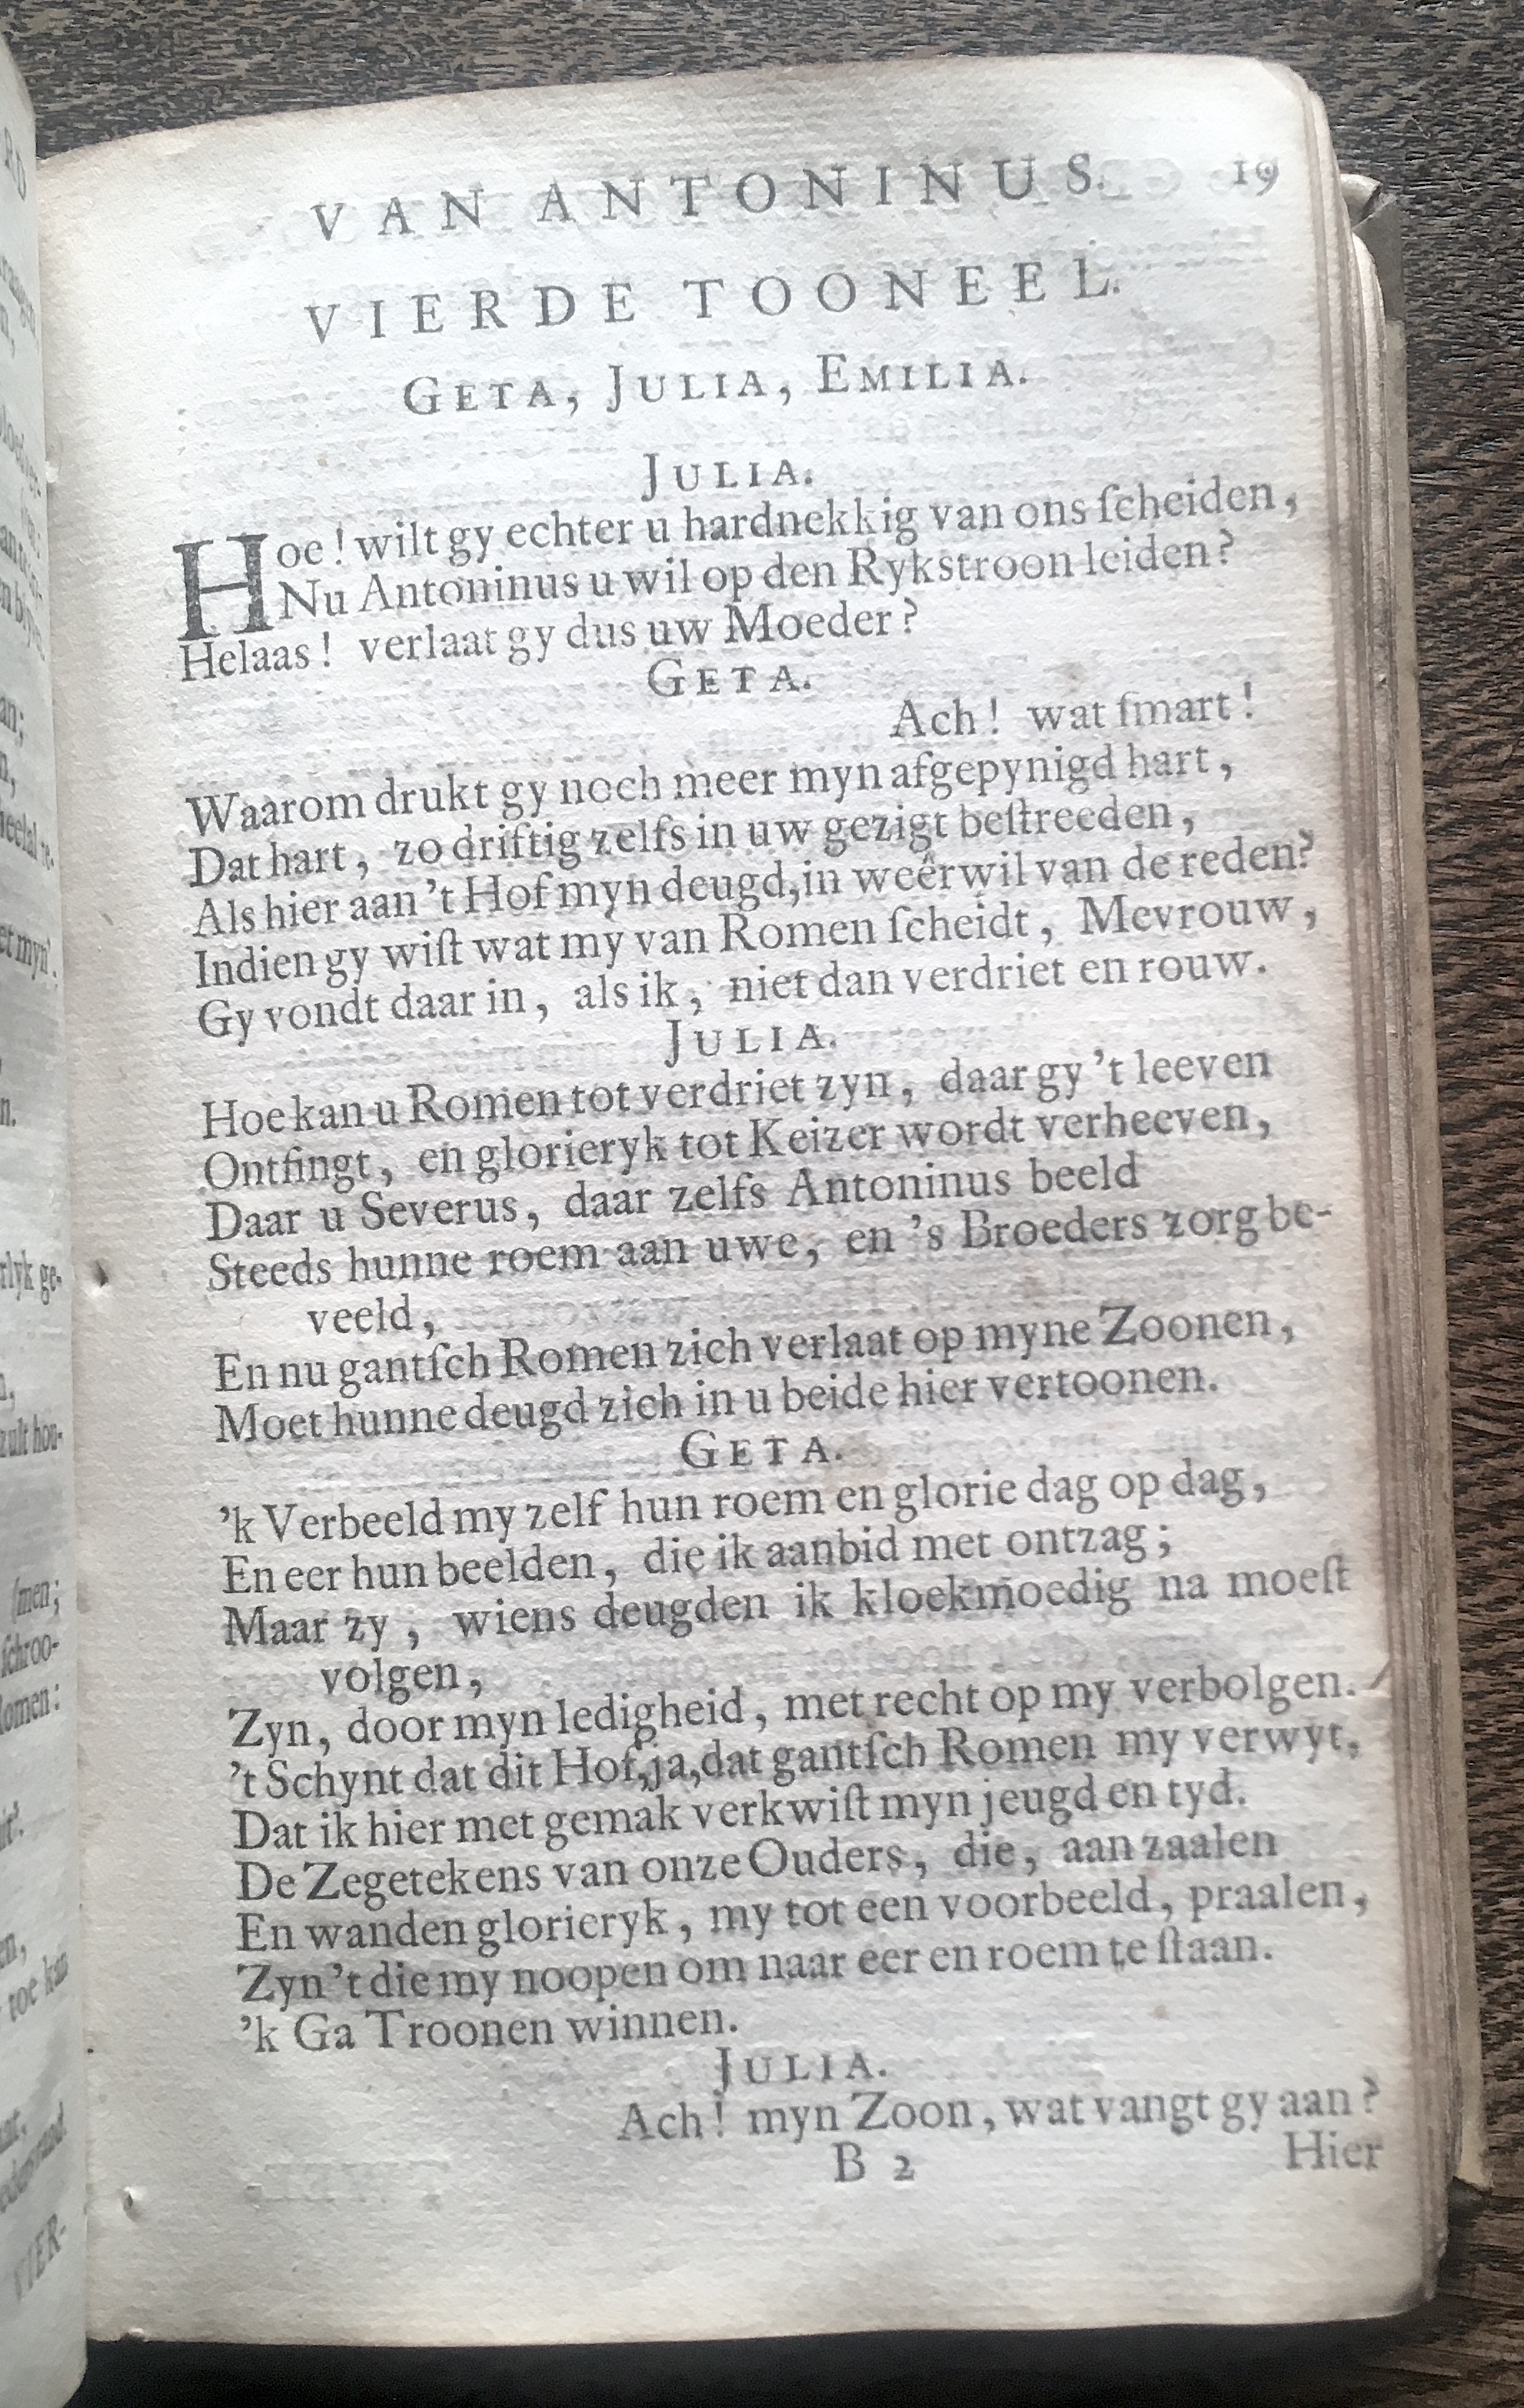 VAN ANTONINUS. 19
VIERDE TOONEEL.
GETA, JULIA, EMILIA.
JULIA.
Hoe! wilt gy echter u hardnekkig van ons ſcheiden,
Nu Antoninus u wil op den Rykstroon leiden?
Helaas! verlaat gy dus uw Moeder?
GETA.
Ach! wat ſmart!
Waarom drukt gy noch meer myn afgepynigd hart,
Dat hart, zo driftig zelfs in uw gezigt beſtreeden,
Als hier aan 't Hof myn deugd, in weêrwil van de reden?
Indien gy wiſt wat my van Romen ſcheidt, Mevrouw,
Gy vondt daar in, als ik, niet dan verdriet en rouw.
JULIA.
Hoe kan u Romen tot verdriet zyn, daar gy 't leeven
Ontfingt, en glorieryk tot Keizer wordt verheeven,
Daar u Severus, daar zelfs Antoninus beeld
Steeds hunne roem aan uwe, en 's Broeders zorg be-
veeld,
En nu gantſch Romen zich verlaat op myne Zoonen,
Moet hunne deugd zich in u beide hier vertoonen.
GETA.
'k Verbeeld my zelf hun roem en glorie dag op dag,
En eer hun beelden, die ik aanbid met ontzag;
Maar zy, wiens deugden ik kloekmoedig na moeſt
volgen,
Zyn, door myn ledigheid, met recht op my verbolgen.
't Schynt dat dit Hof, ja, dat gantſch Romen my verwyt,
Dat ik hier met gemak verkwiſt myn jeugd en tyd.
De Zegetekens van onze Ouders, die, aan zaalen
En wanden glorieryk, my tot een voorbeeld, praalen,
Zyn 't die my noopen om naar eer en roem te ſtaan.
'k Ga Troonen winnen.
JULIA.
Ach! myn Zoon, wat vangt gy aan?
B 2 Hier